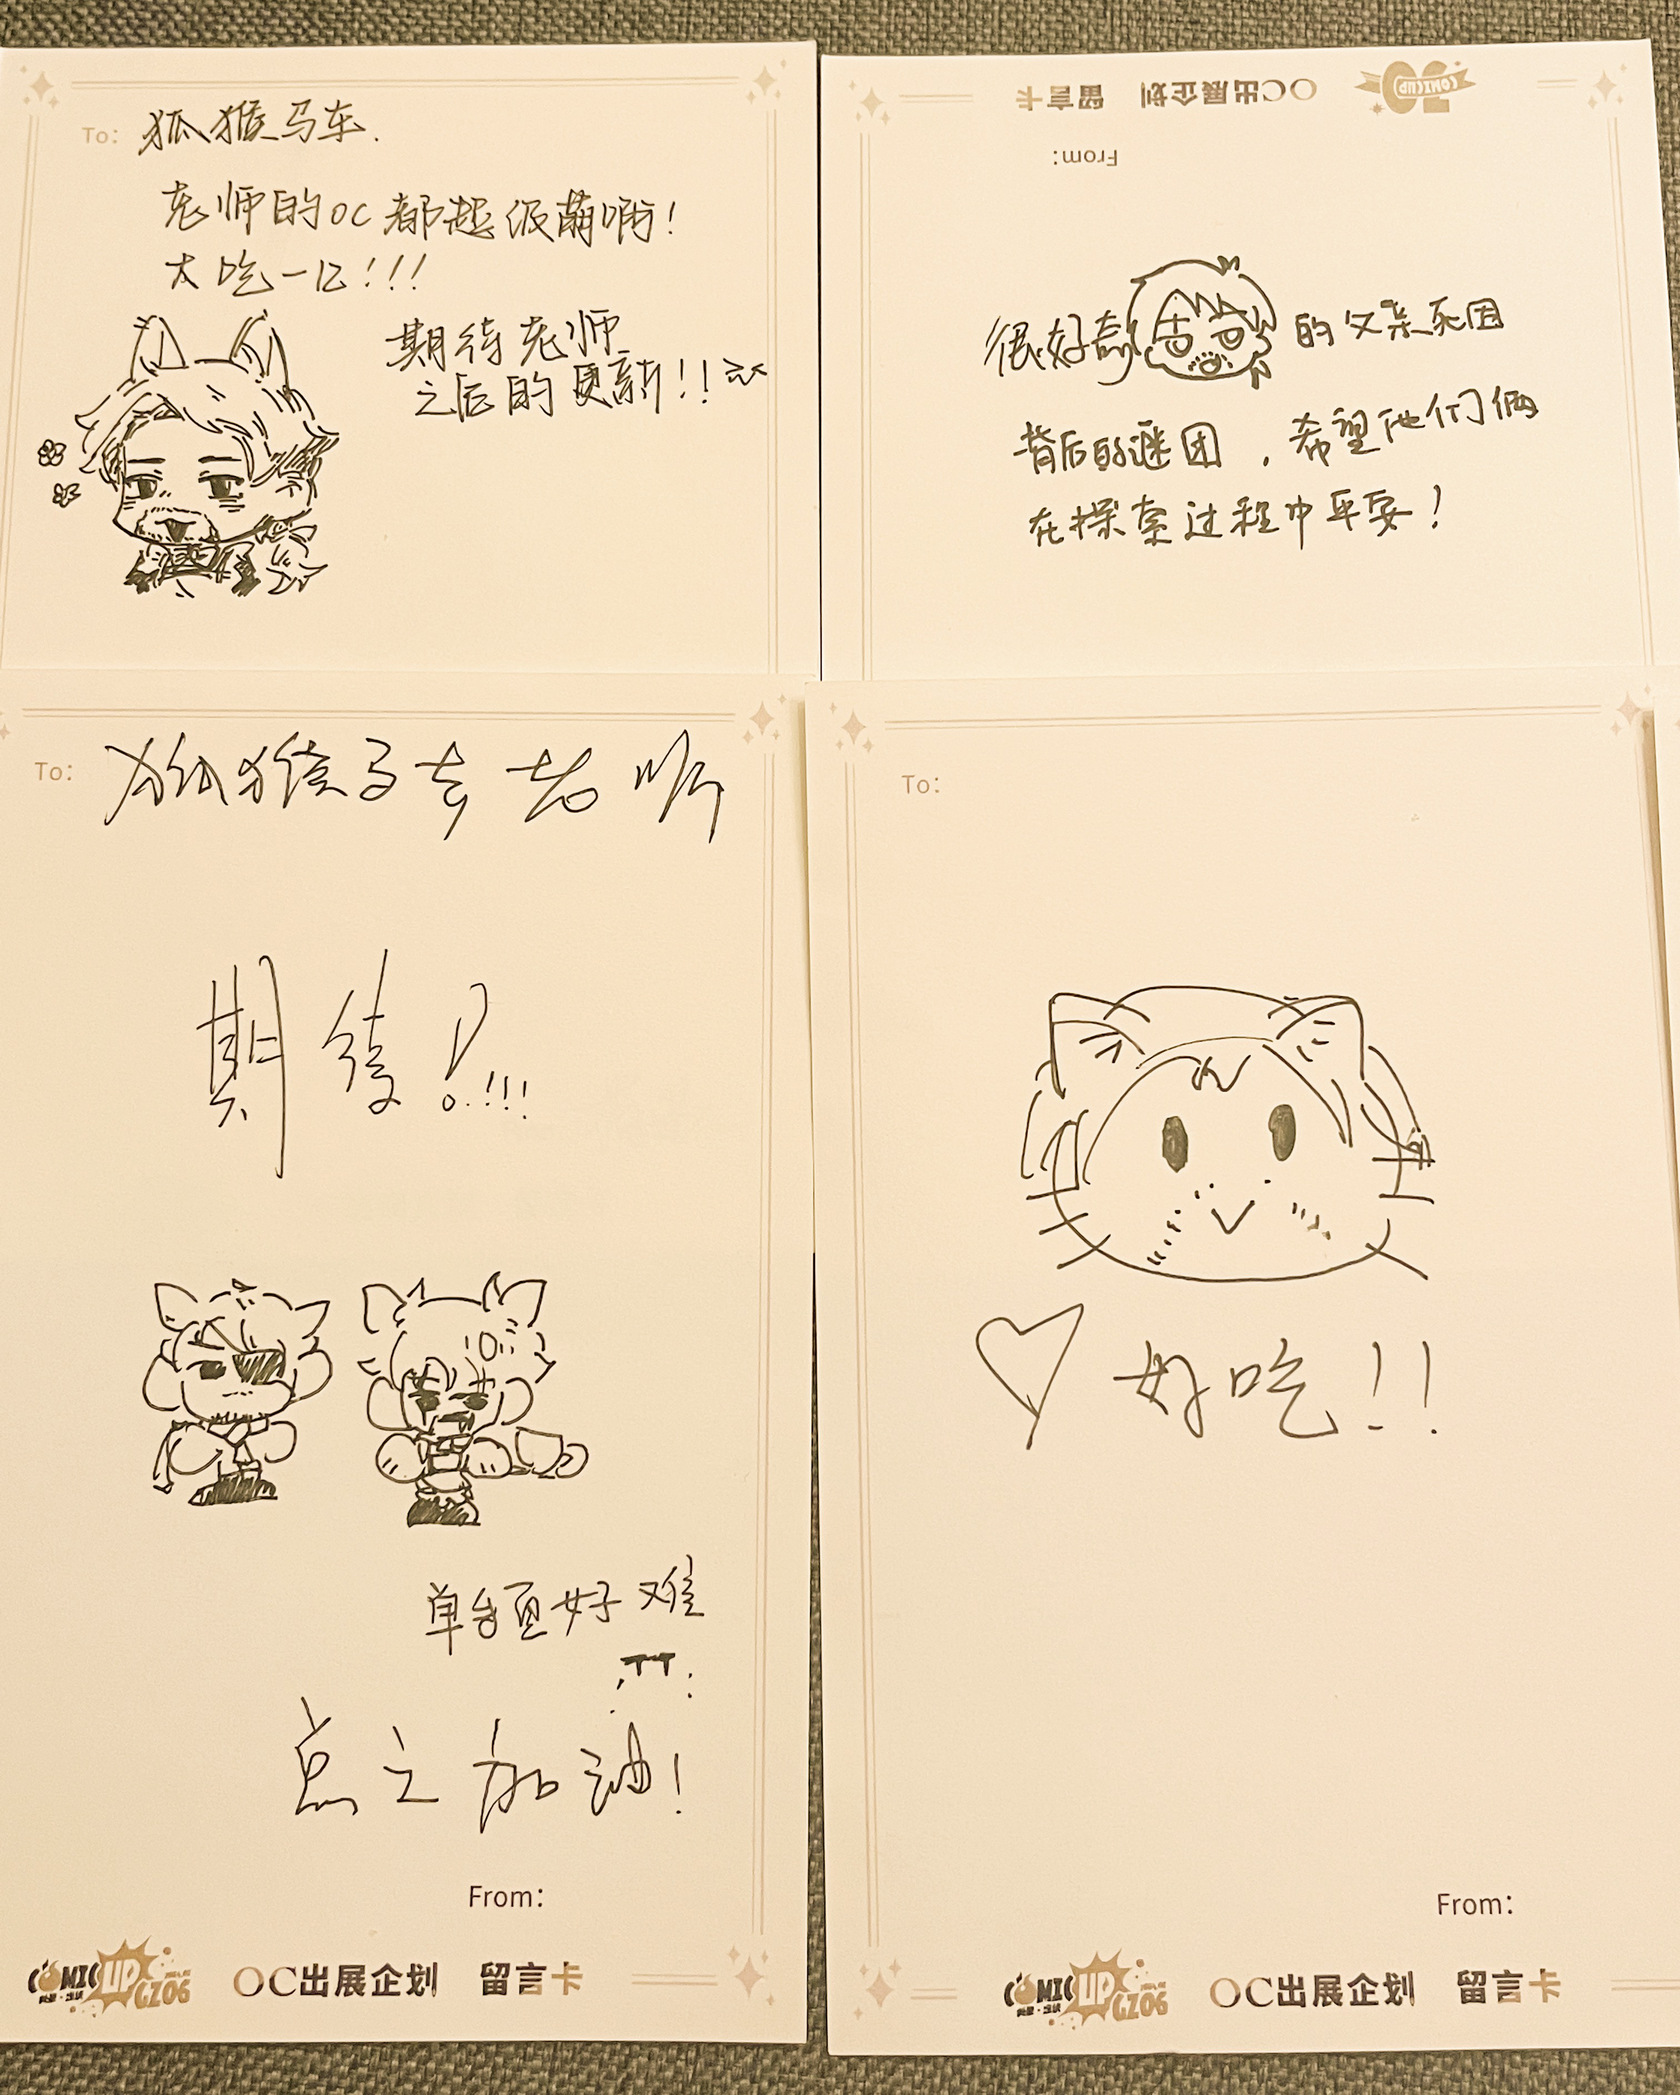 To: 狐猴马车.
老师的OC都超级萌啊!
大吃一口!!!
期待老师
之后的更新!!
留言卡
OC出展企划
COMICUP
From:
很好奇
的父亲死因
背后的谜团,希望他们俩
在探索过程中平安!
To: 狐猴马车老师
期待!!!!
单台面好难
TT
总之加油!
From:
COMICUP GZ06 OC出展企划 留言卡
To:
好吃!!
From:
COMICUP GZ06 OC出展企划 留言卡